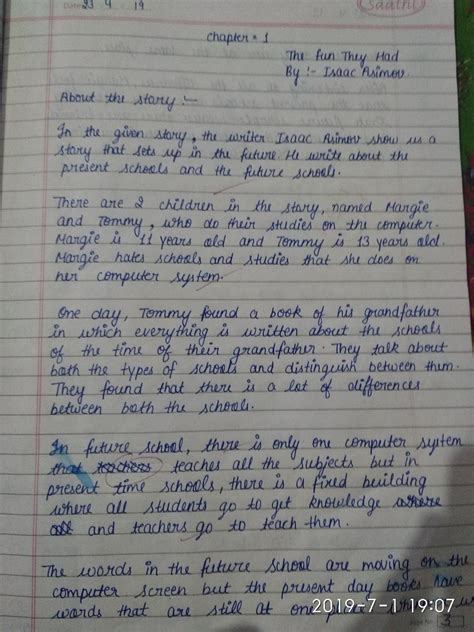 23 4 19
Saathi
Chapter = 1
The Fun They Had
By :- Isaac Asimov
About the story :-
In the given story, the writer Isaac Asimov show us a
story that sets up in the future. He write about the
present schools and the future schools.
There are 2 children in the story, named Margie
and Tommy, who do their studies on the computer.
Margie is 11 years old and Tommy is 13 years old.
Margie hates schools and studies that she does on
her computer system.
One day, Tommy found a book of his grandfather
in which everything is written about the schools
of the time of their grandfather. They talk about
both the types of schools and distinguish between them.
They found that there is a lot of differences
between both the schools.
In future school, there is only one computer system
that teachers teaches all the subjects but in
present time schools, there is a fixed building
where all students go to get knowledge where
and teachers go to teach them.
The words in the future school are moving on the
computer screen but the present day books have
words that are still at one
2019-7-1 19:07
Page No. 3